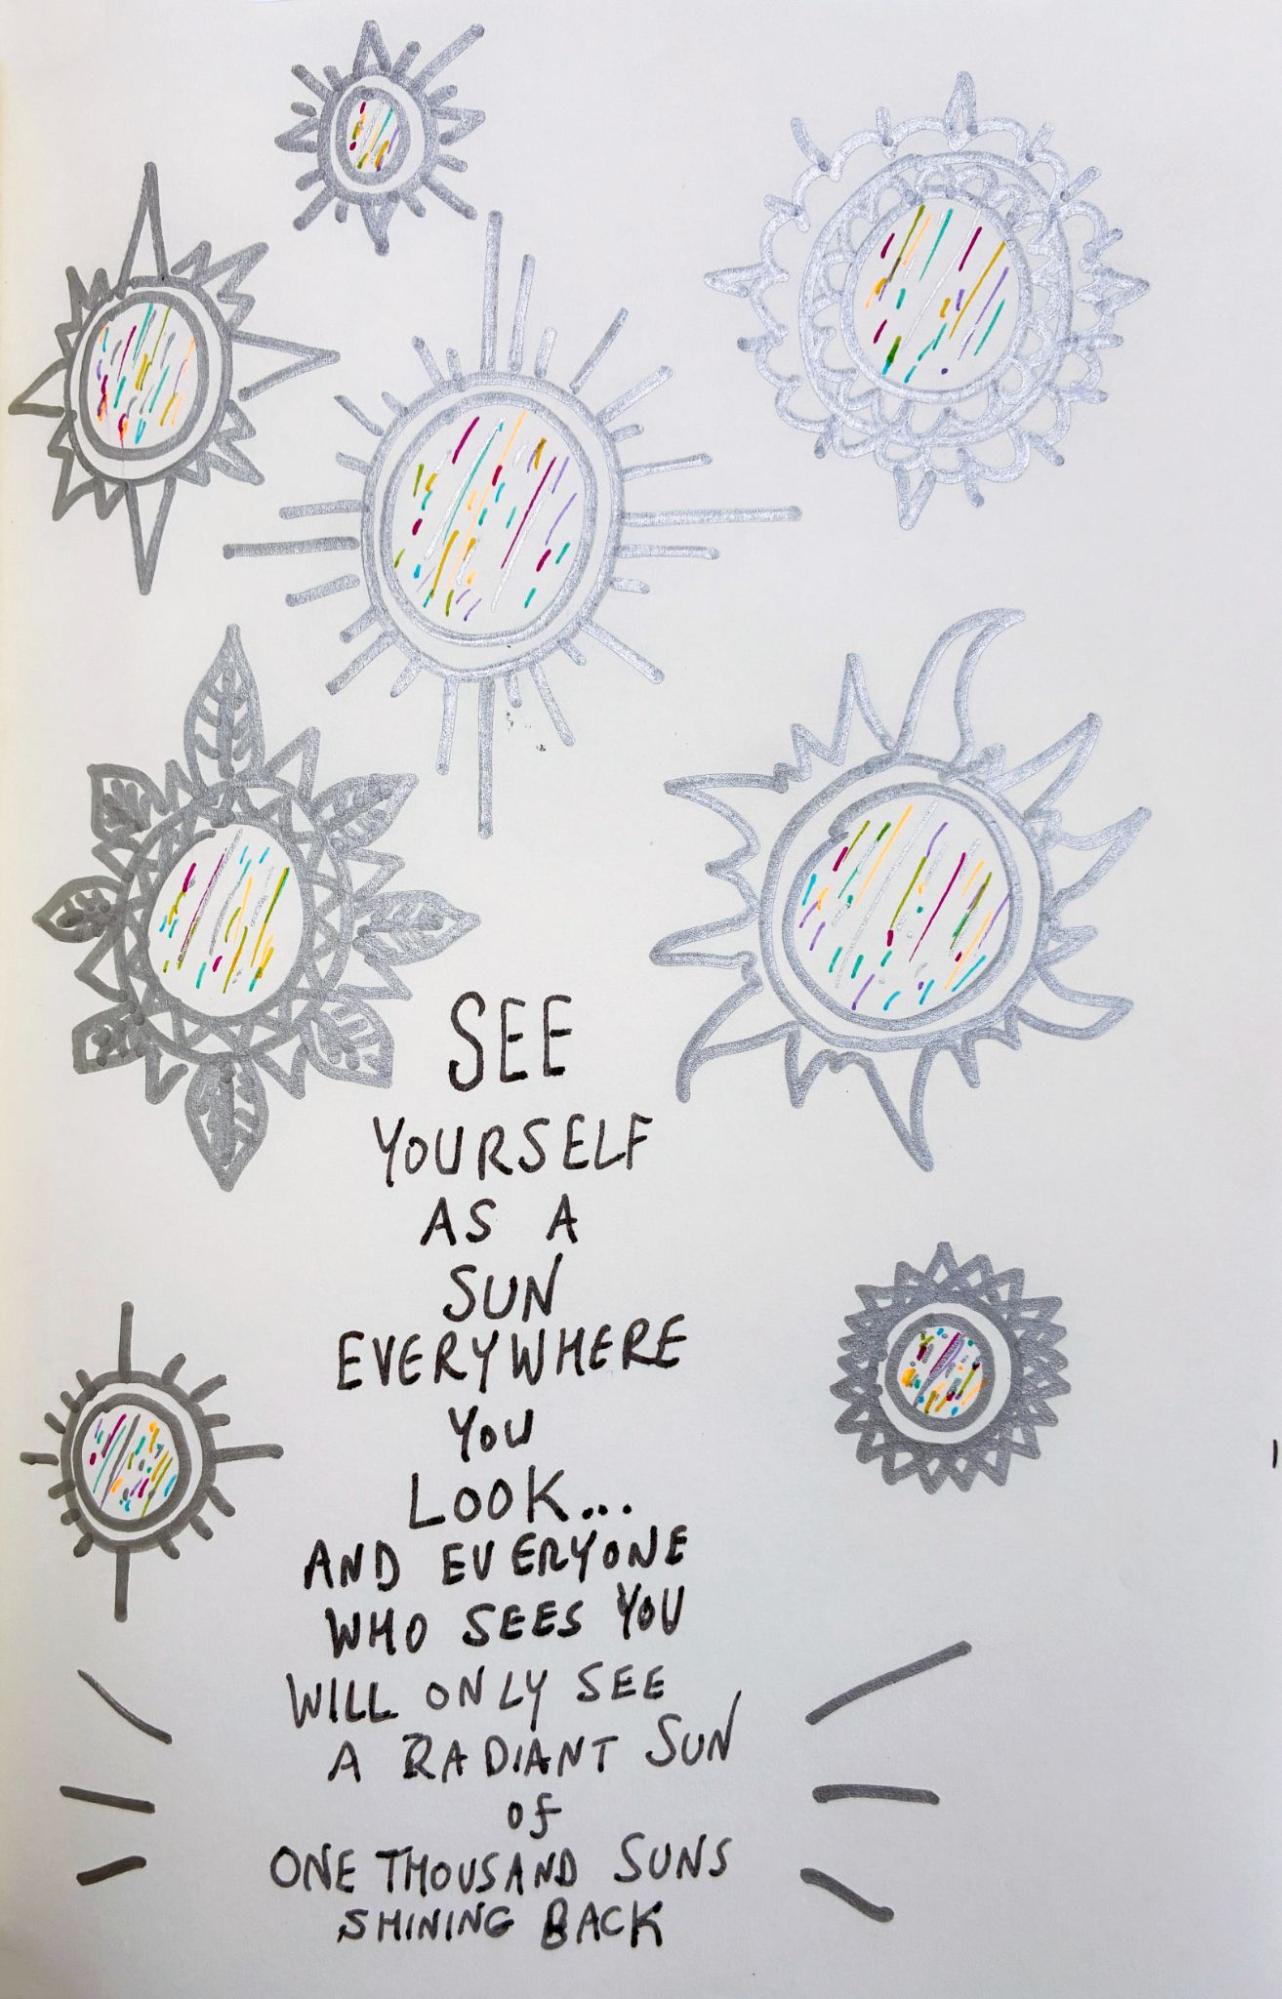 SEE
YOURSELF
AS A
SUN
EVERYWHERE
YOU
LOOK...
AND EVERYONE
WHO SEES YOU
WILL ONLY SEE
A RADIANT SUN
of
ONE THOUSAND SUNS
SHINING BACK